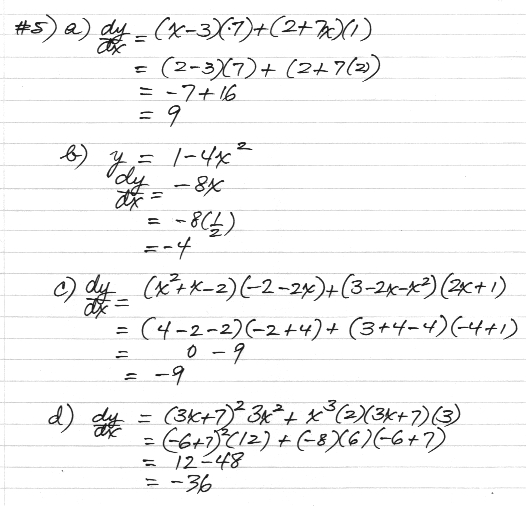 #5) a) dy/dx = (x-3)(7)+(2+7x)(1)
= (2-3)(7)+(2+7(2))
= -7+16
= 9
b) y = 1-4x²
dy/dx = -8x
= -8(1/2)
= -4
c) dy/dx = (x²+x-2)(-2-2x)+(3-2x-x²)(2x+1)
= (4-2-2)(-2+4)+(3+4-4)(-4+1)
= 0 - 9
= -9
d) dy/dx = (3x+7)² 3x² + x³(2)(3x+7)(3)
= (-6+7)²(12)+(-8)(6)(-6+7)
= 12-48
= -36